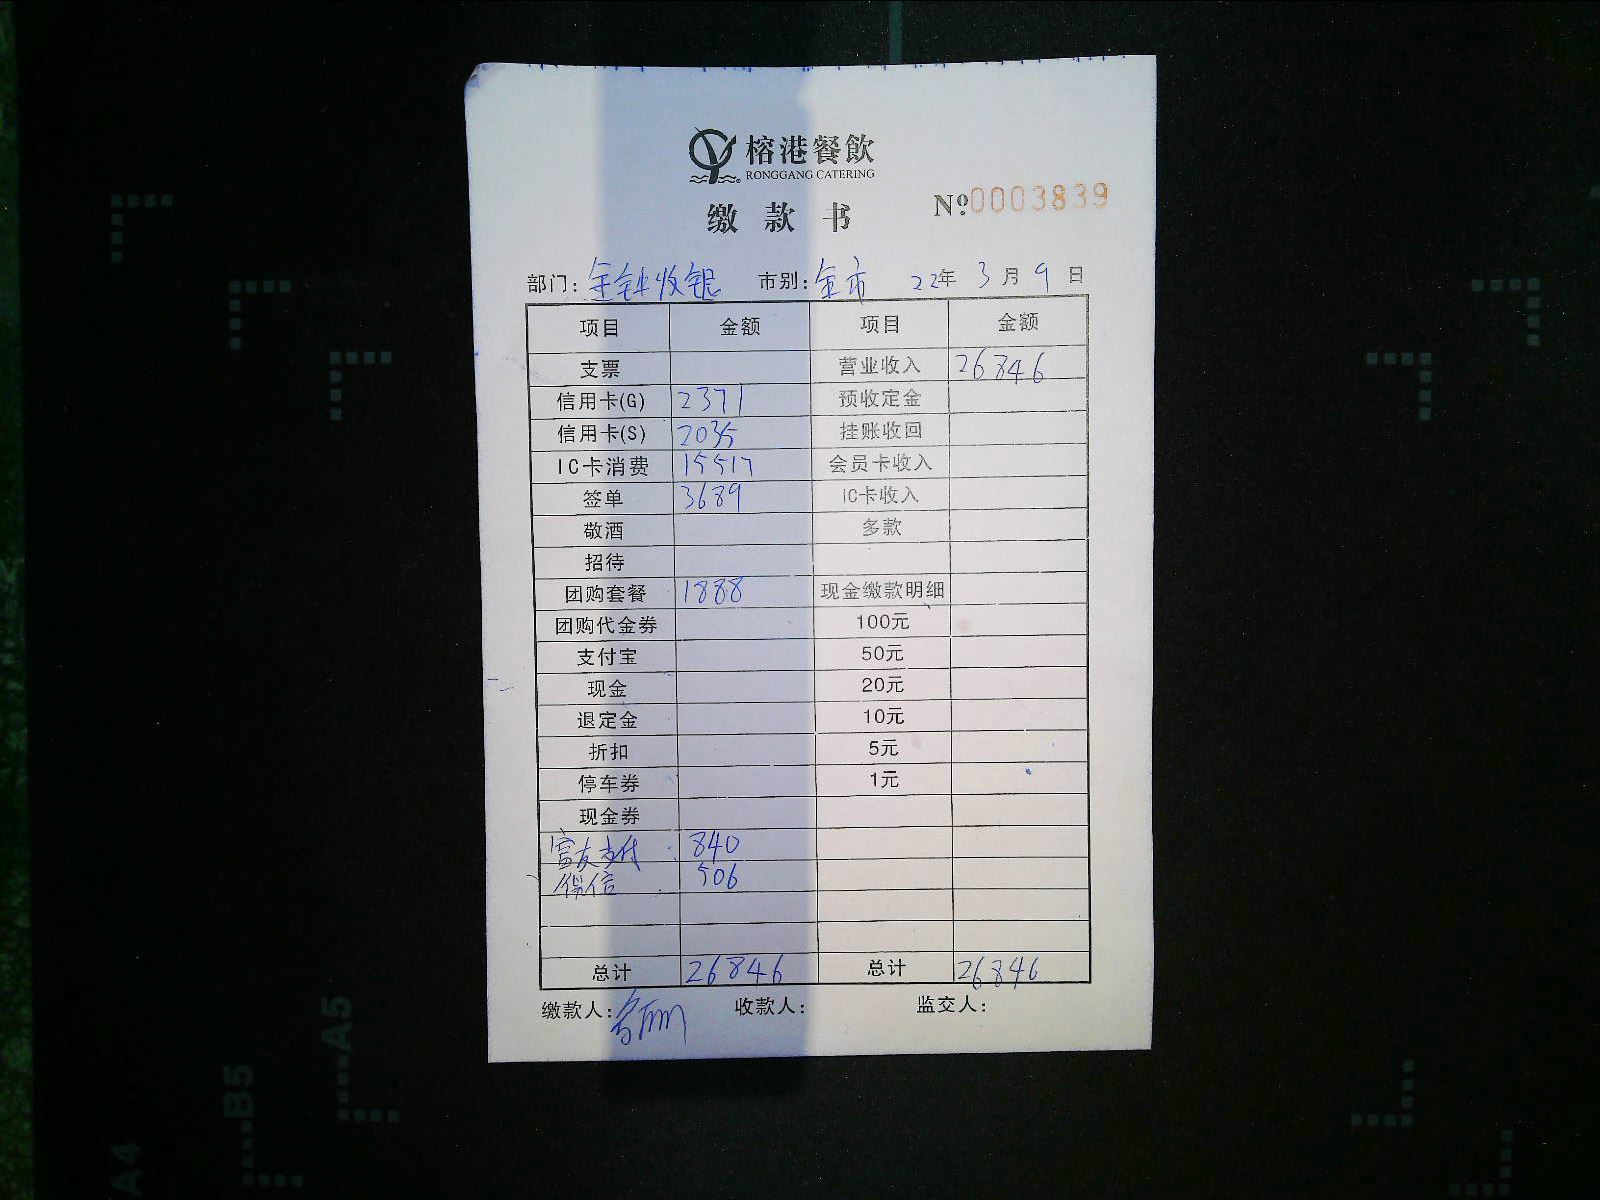 榕港餐飲
RONGGANG CATERING
缴款书
Nº:0003839
部门: 金钟收银 市别: 全市 22年 3月 9日
项目 金额 项目 金额
支票 营业收入 26846
信用卡(G) 2371 预收定金
信用卡(S) 2035 挂账收回
IC卡消费 15517 会员卡收入
签单 3689 IC卡收入
敬酒 多款
招待
团购套餐 1888 现金缴款明细
团购代金券 100元
支付宝 50元
现金 20元
退定金 10元
折扣 5元
停车券 1元
现金券
富友支付: 840
微信: 506
总计 26846 总计 26846
缴款人: 收款人: 监交人:
A5
B5
A4